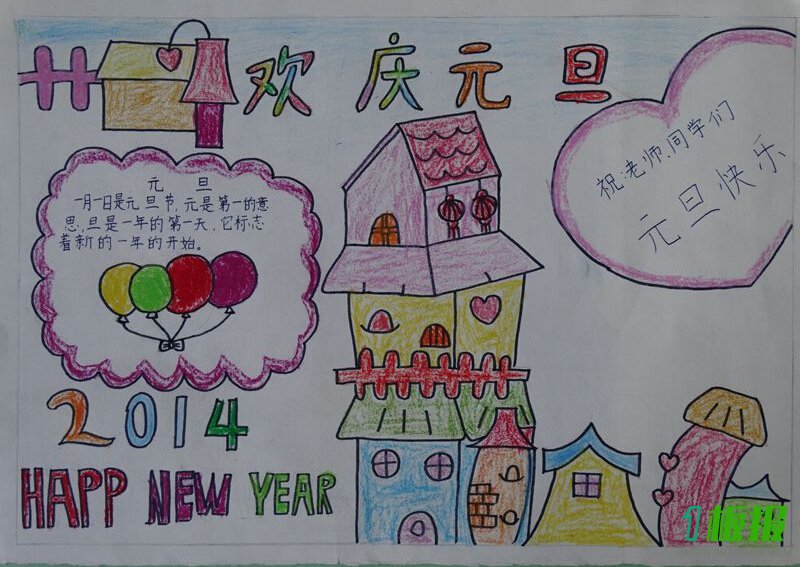 欢庆元旦
元 旦
一月一日是元旦节,元是第一的意
思,旦是一年的第一天,它标志
着新的一年的开始。
祝:老师、同学们
元旦快乐
2014
HAPP NEW YEAR
1板报